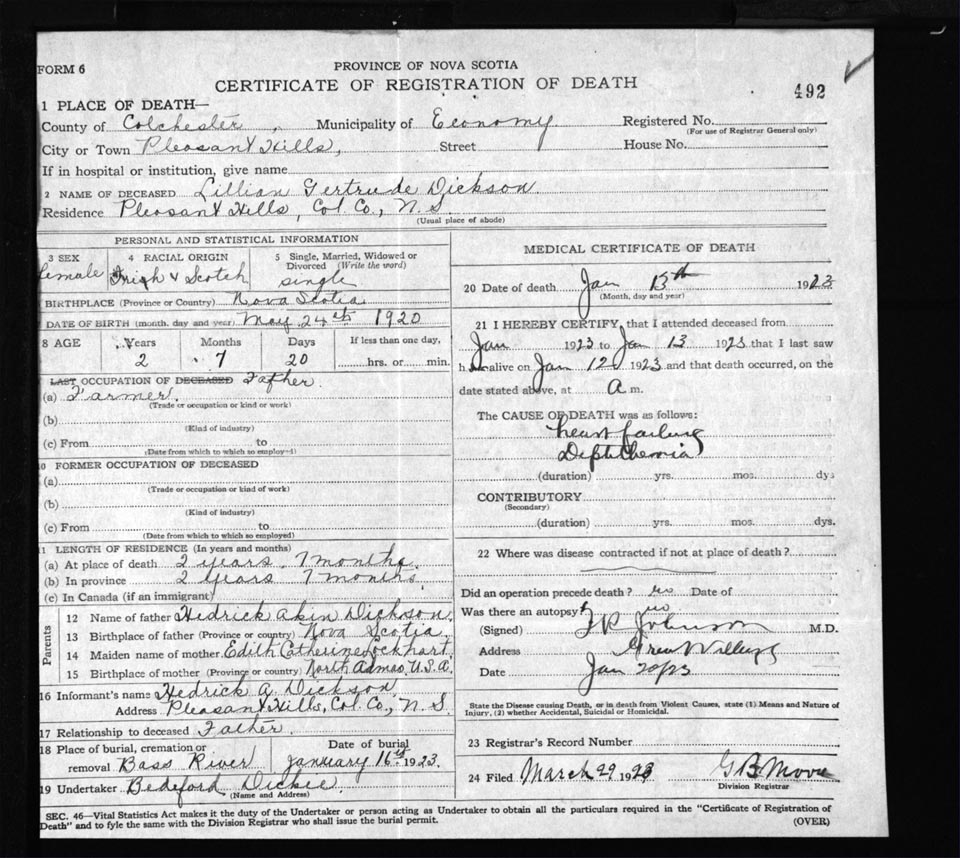 FORM 6
PROVINCE OF NOVA SCOTIA
CERTIFICATE OF REGISTRATION OF DEATH
492
1 PLACE OF DEATH—
County of Colchester, Municipality of Economy Registered No.
(For use of Registrar General only)
City or Town Pleasant Hills, Street House No.
If in hospital or institution, give name
2 NAME OF DECEASED Lillian Gertrude Dickson
Residence Pleasant Hills, Col. Co., N. S.
(Usual place of abode)
PERSONAL AND STATISTICAL INFORMATION
3 SEX 4 RACIAL ORIGIN 5 Single, Married, Widowed or Divorced (Write the word)
female Irish & Scotch single
BIRTHPLACE (Province or Country) Nova Scotia
DATE OF BIRTH (month, day and year) May 24th 1920
8 AGE Years Months Days If less than one day,
2 7 20 hrs. or min.
LAST OCCUPATION OF DECEASED Father.
(a) Farmer.
(Trade or occupation or kind or work)
(b)
(Kind of industry)
(c) From to
(Date from which to which so employed)
0 FORMER OCCUPATION OF DECEASED
(a)
(Trade or occupation or kind of work)
(b)
(Kind of industry)
(c) From to
(Date from which to which so employed)
1 LENGTH OF RESIDENCE (In years and months)
(a) At place of death 2 years. 7 months.
(b) In province 2 years 7 months.
(c) In Canada (if an immigrant)
Parents
12 Name of father Hedrick Akin Dickson.
13 Birthplace of father (Province or country) Nova Scotia.
14 Maiden name of mother Edith Catherine Lockhart.
15 Birthplace of mother (Province or country) North U.S.A.
16 Informant's name Hedrick A. Dickson.
Address Pleasant Hills, Col. Co., N. S.
17 Relationship to deceased Father.
18 Place of burial, cremation or removal Bass River
Date of burial January 16th 1923.
19 Undertaker Bedeford Dickie.
(Name and Address)
MEDICAL CERTIFICATE OF DEATH
20 Date of death Jan 13th 1923
(Month, day and year)
21 I HEREBY CERTIFY, that I attended deceased from
Jan 1923 to Jan 13 1923 that I last saw
h alive on Jan 12 1923 and that death occurred, on the
date stated above, at a m.
The CAUSE OF DEATH was as follows:
heart failure
Diphtheria
(duration) yrs. mos. dys
CONTRIBUTORY
(Secondary)
(duration) yrs. mos. dys.
22 Where was disease contracted if not at place of death?
Did an operation precede death? no Date of
Was there an autopsy? no
(Signed) Johnson M.D.
Address Great Village
Date Jan
State the Disease causing Death, or in death from Violent Causes, state (1) Means and Nature of
Injury, (2) whether Accidental, Suicidal or Homicidal.
23 Registrar's Record Number
24 Filed March 29 1923 G B Moore
Division Registrar
SEC. 46—Vital Statistics Act makes it the duty of the Undertaker or person acting as Undertaker to obtain all the particulars required in the "Certificate of Registration of
Death" and to fyle the same with the Division Registrar who shall issue the burial permit.
(OVER)